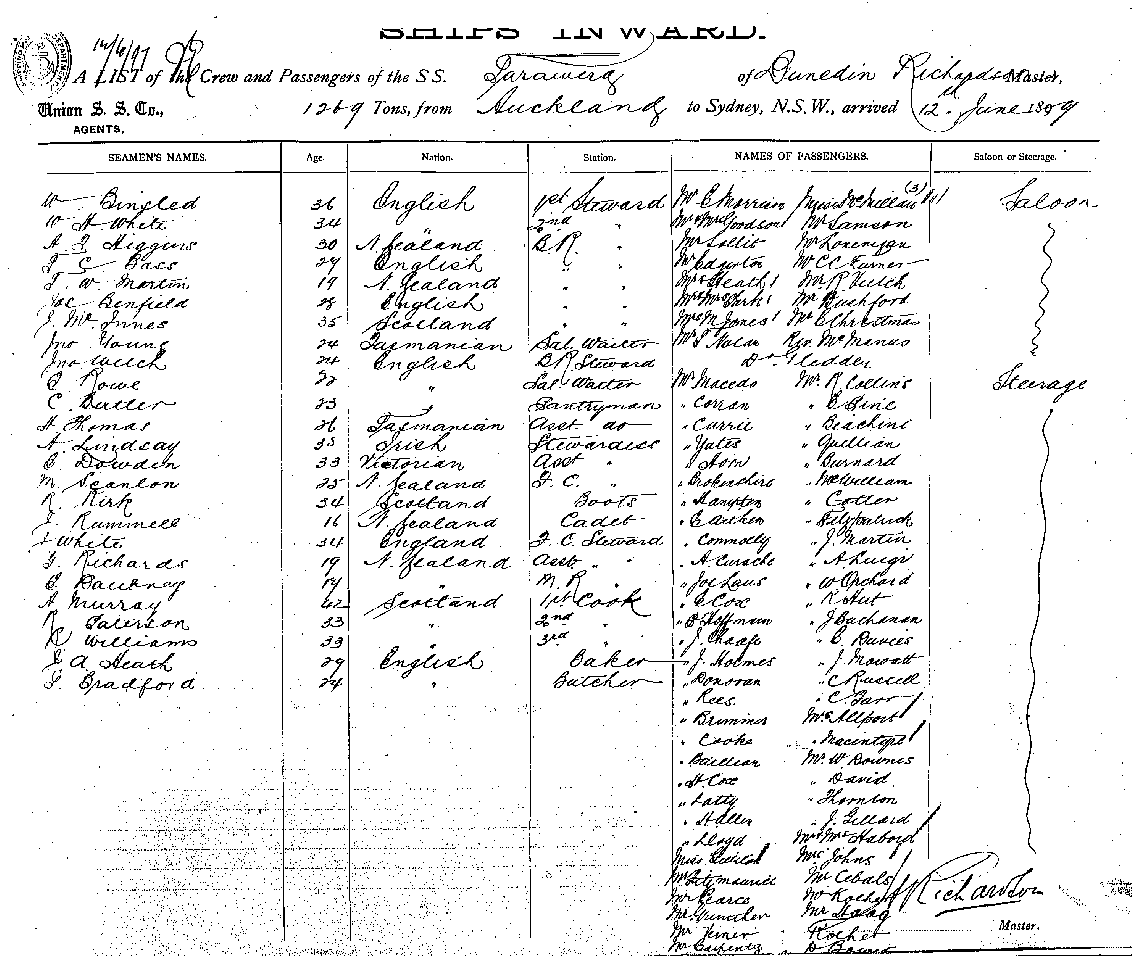 SHIPS INWARD.
14/6/97
A LIST of the Crew and Passengers of the S.S. Tarawera of Dunedin Richardson Master,
Union S. S. Co., 1269 Tons, from Auckland to Sydney, N.S.W., arrived 12 June 1897
AGENTS,
SEAMEN'S NAMES. Age. Nation. Station. NAMES OF PASSENGERS. Saloon or Steerage.
W Bingled 36 English 1st Steward Mr C Morrison Miss McMillan (3) Saloon
W H White 34 2nd " Mr Mrs Goodson Mr Samson
A J Higgins 30 N Zealand B.R. " Mr Sollit Mr Lonergan
T C Bass 29 English " " Mr Edgerton Mr C C Turner
T. W. Martin 19 N. Zealand " " Mrs Heath Mr R Veitch
Benfield 28 English " " Mr Mrs Kirk Mr Bushford
J. McInnes 35 Scotland " " Mrs M Jones Mr E Christmas
Jno Young 24 Tasmanian Sal Waiter Mr T Nolan Rev. McManus
Jno Welch 24 English B R Steward Dr Tledder
C Rowe 22 " Sal Waiter Mr Macedo Mr. R Collins Steerage
C. Butler 23 " Pantryman " Corran " E Pine
H Thomas 26 Tasmanian Asst do " Currie " Beachini
A. Lindsay 35 Irish Stewardess " Yates
C Dowden 33 Victorian Asst " " Horn " Burnard
M. Scanlon 25 N. Zealand F. C. " " Brokenshire " McWilliam
R. Kirk 34 Scotland Boots " Hampton " Cotter
J. Rummell 16 N. Zealand Cadet " E Aicken " Fitzpatrick
J White 34 England F. C. Steward " Connolly " J. Martin
G. Richards 19 N. Zealand Asst " " " A Luigi
C Daukney 19 " M. R " " Joe Laus " W Orchard
A Murray 42 Scotland 1st Cook " E Cox " R Hut
Paterson 33 " 2nd " " Hoffman " J Buchanan
R Williams 33 " 3rd " " J. Chaafe " E. Davies
J A Heath 29 English Baker " J. Holmes " J. Mowatt
G. Bradford 24 " Butcher " Donovan " C Russell
" Rees " C Barr
" Brimmer Mrs Allport
" Cooke " Macintyre
" Mr. W. Downes
" H Cox " David
" Latty " Thornton
" Haller " J. Gillard
" Lloyd Mr Mrs Habord
Miss Mrs Johns
Mr Fitzmaurice Mr Cebals
Mr Pearce Mr Richardson
Mr Gunther Mr
Mr Verner Rocher Master.
Mr Carpentz